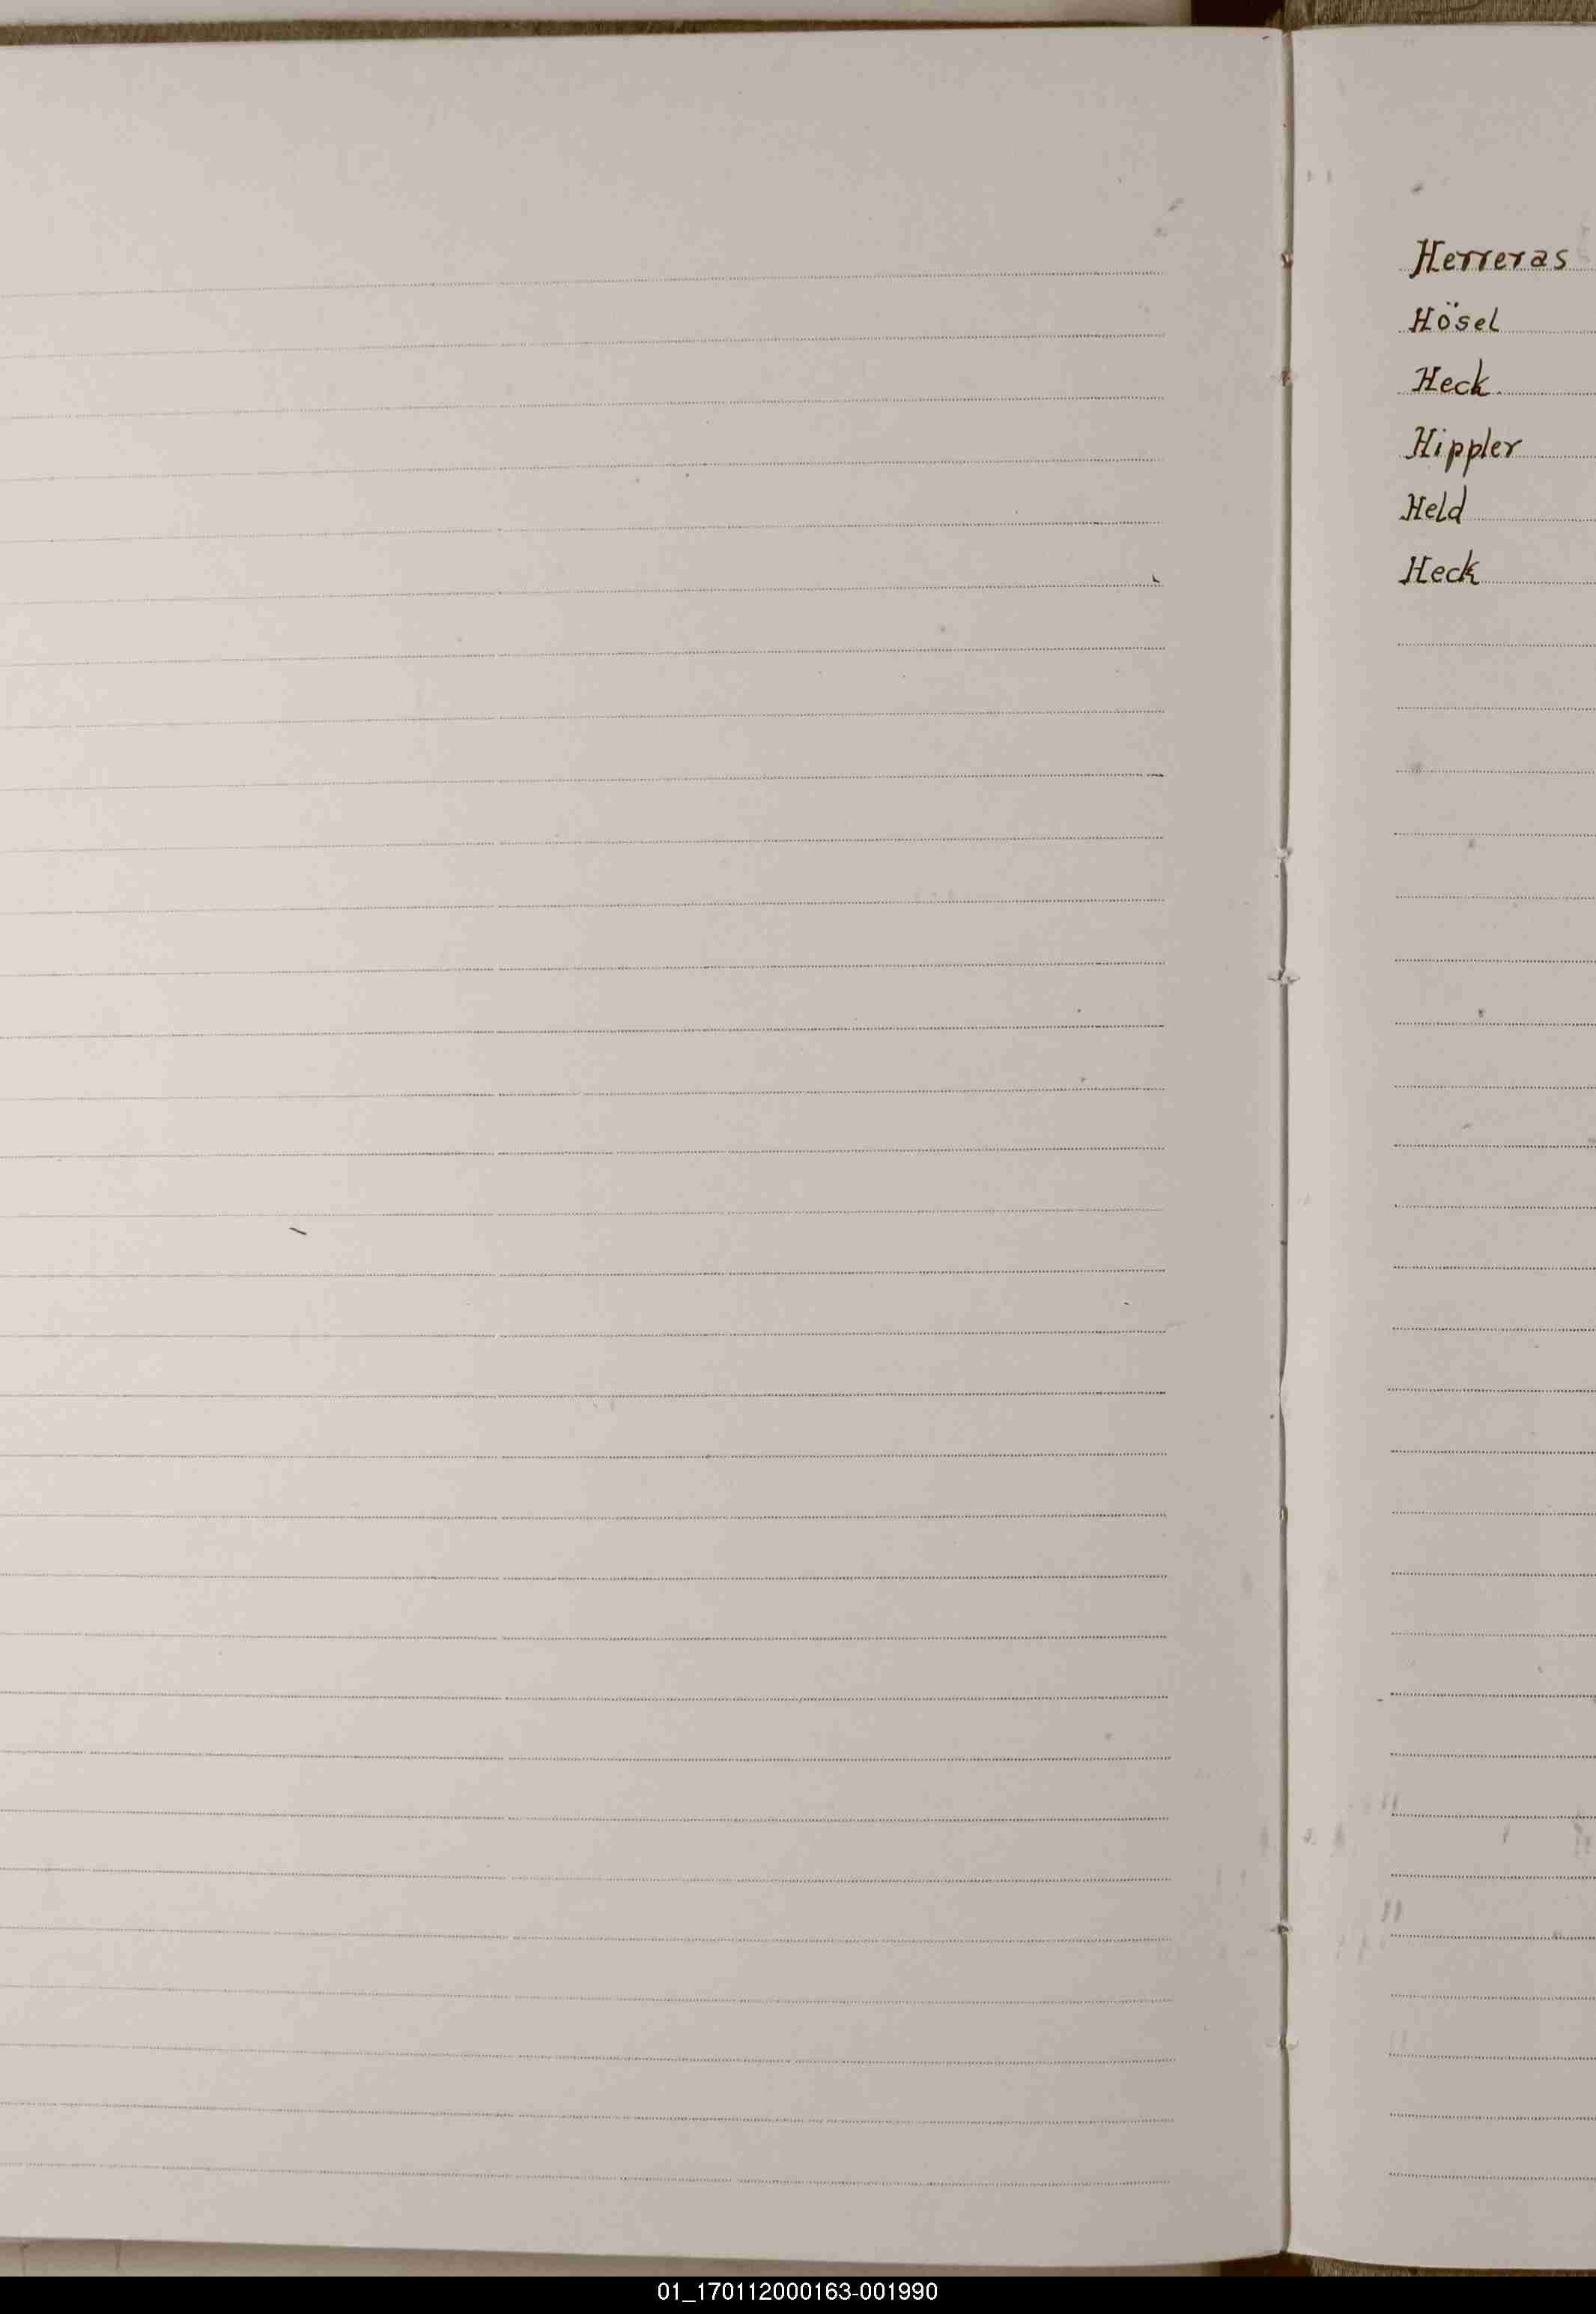 Herreras
Hösel
Heck.
Hippler
Held
Heck
01_170112000163-001990